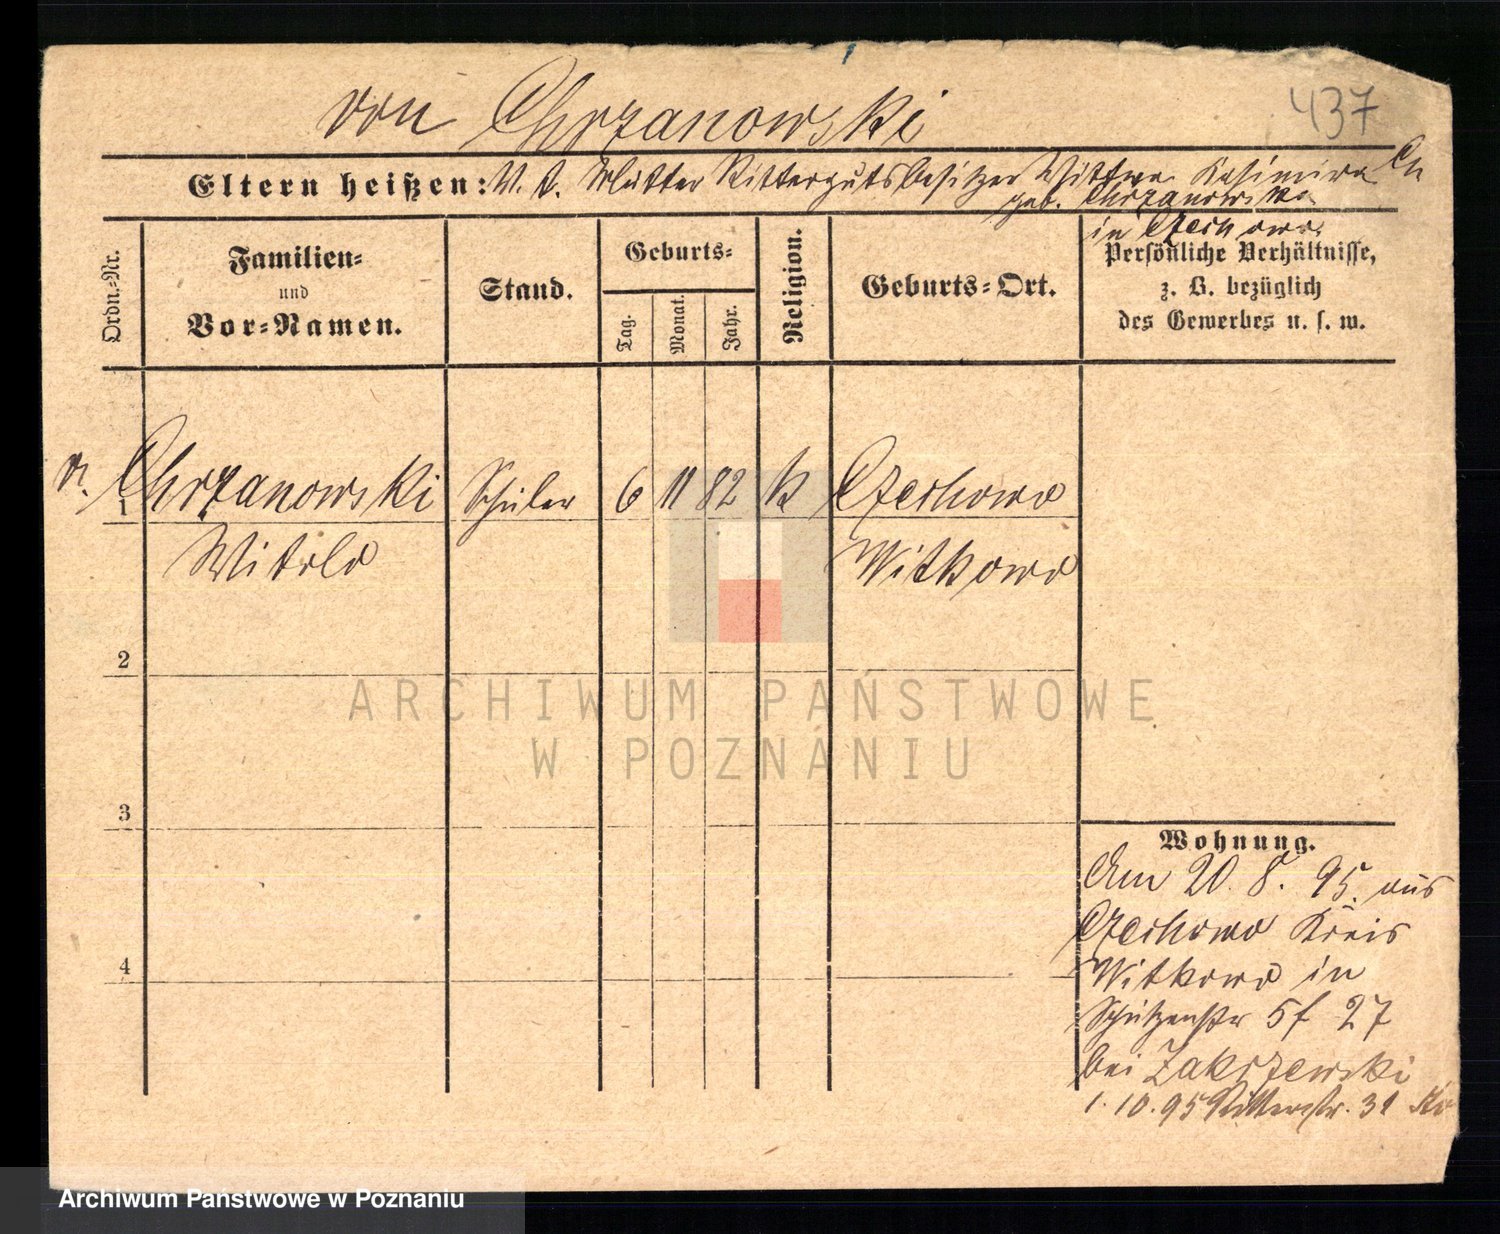 von Chrzanowski
437
Eltern heißen: V. t. Mutter Rittergutsbesitzer Wittwe Kasimira
geb. Chrzanowska
in Czechowo
Ordn.-Nr.
Familien-
und
Vor-Namen.
Stand.
Geburts-
Tag.
Monat.
Jahr.
Religion.
Geburts-Ort.
Persönliche Verhältnisse,
z. B. bezüglich
des Gewerbes u. s. w.
1 v. Chrzanowski Schüler 6 11 82 k Czechowo
Witold Witkowo
2
ARCHIWUM PAŃSTWOWE
W POZNANIU
3
4
Wohnung.
Am 20. 8. 95. aus
Czechowo Kreis
Witkowo in
Schützenstr 5f 27
bei Zakrzewski
1. 10. 95 Ritterstr. 31
Archiwum Państwowe w Poznaniu